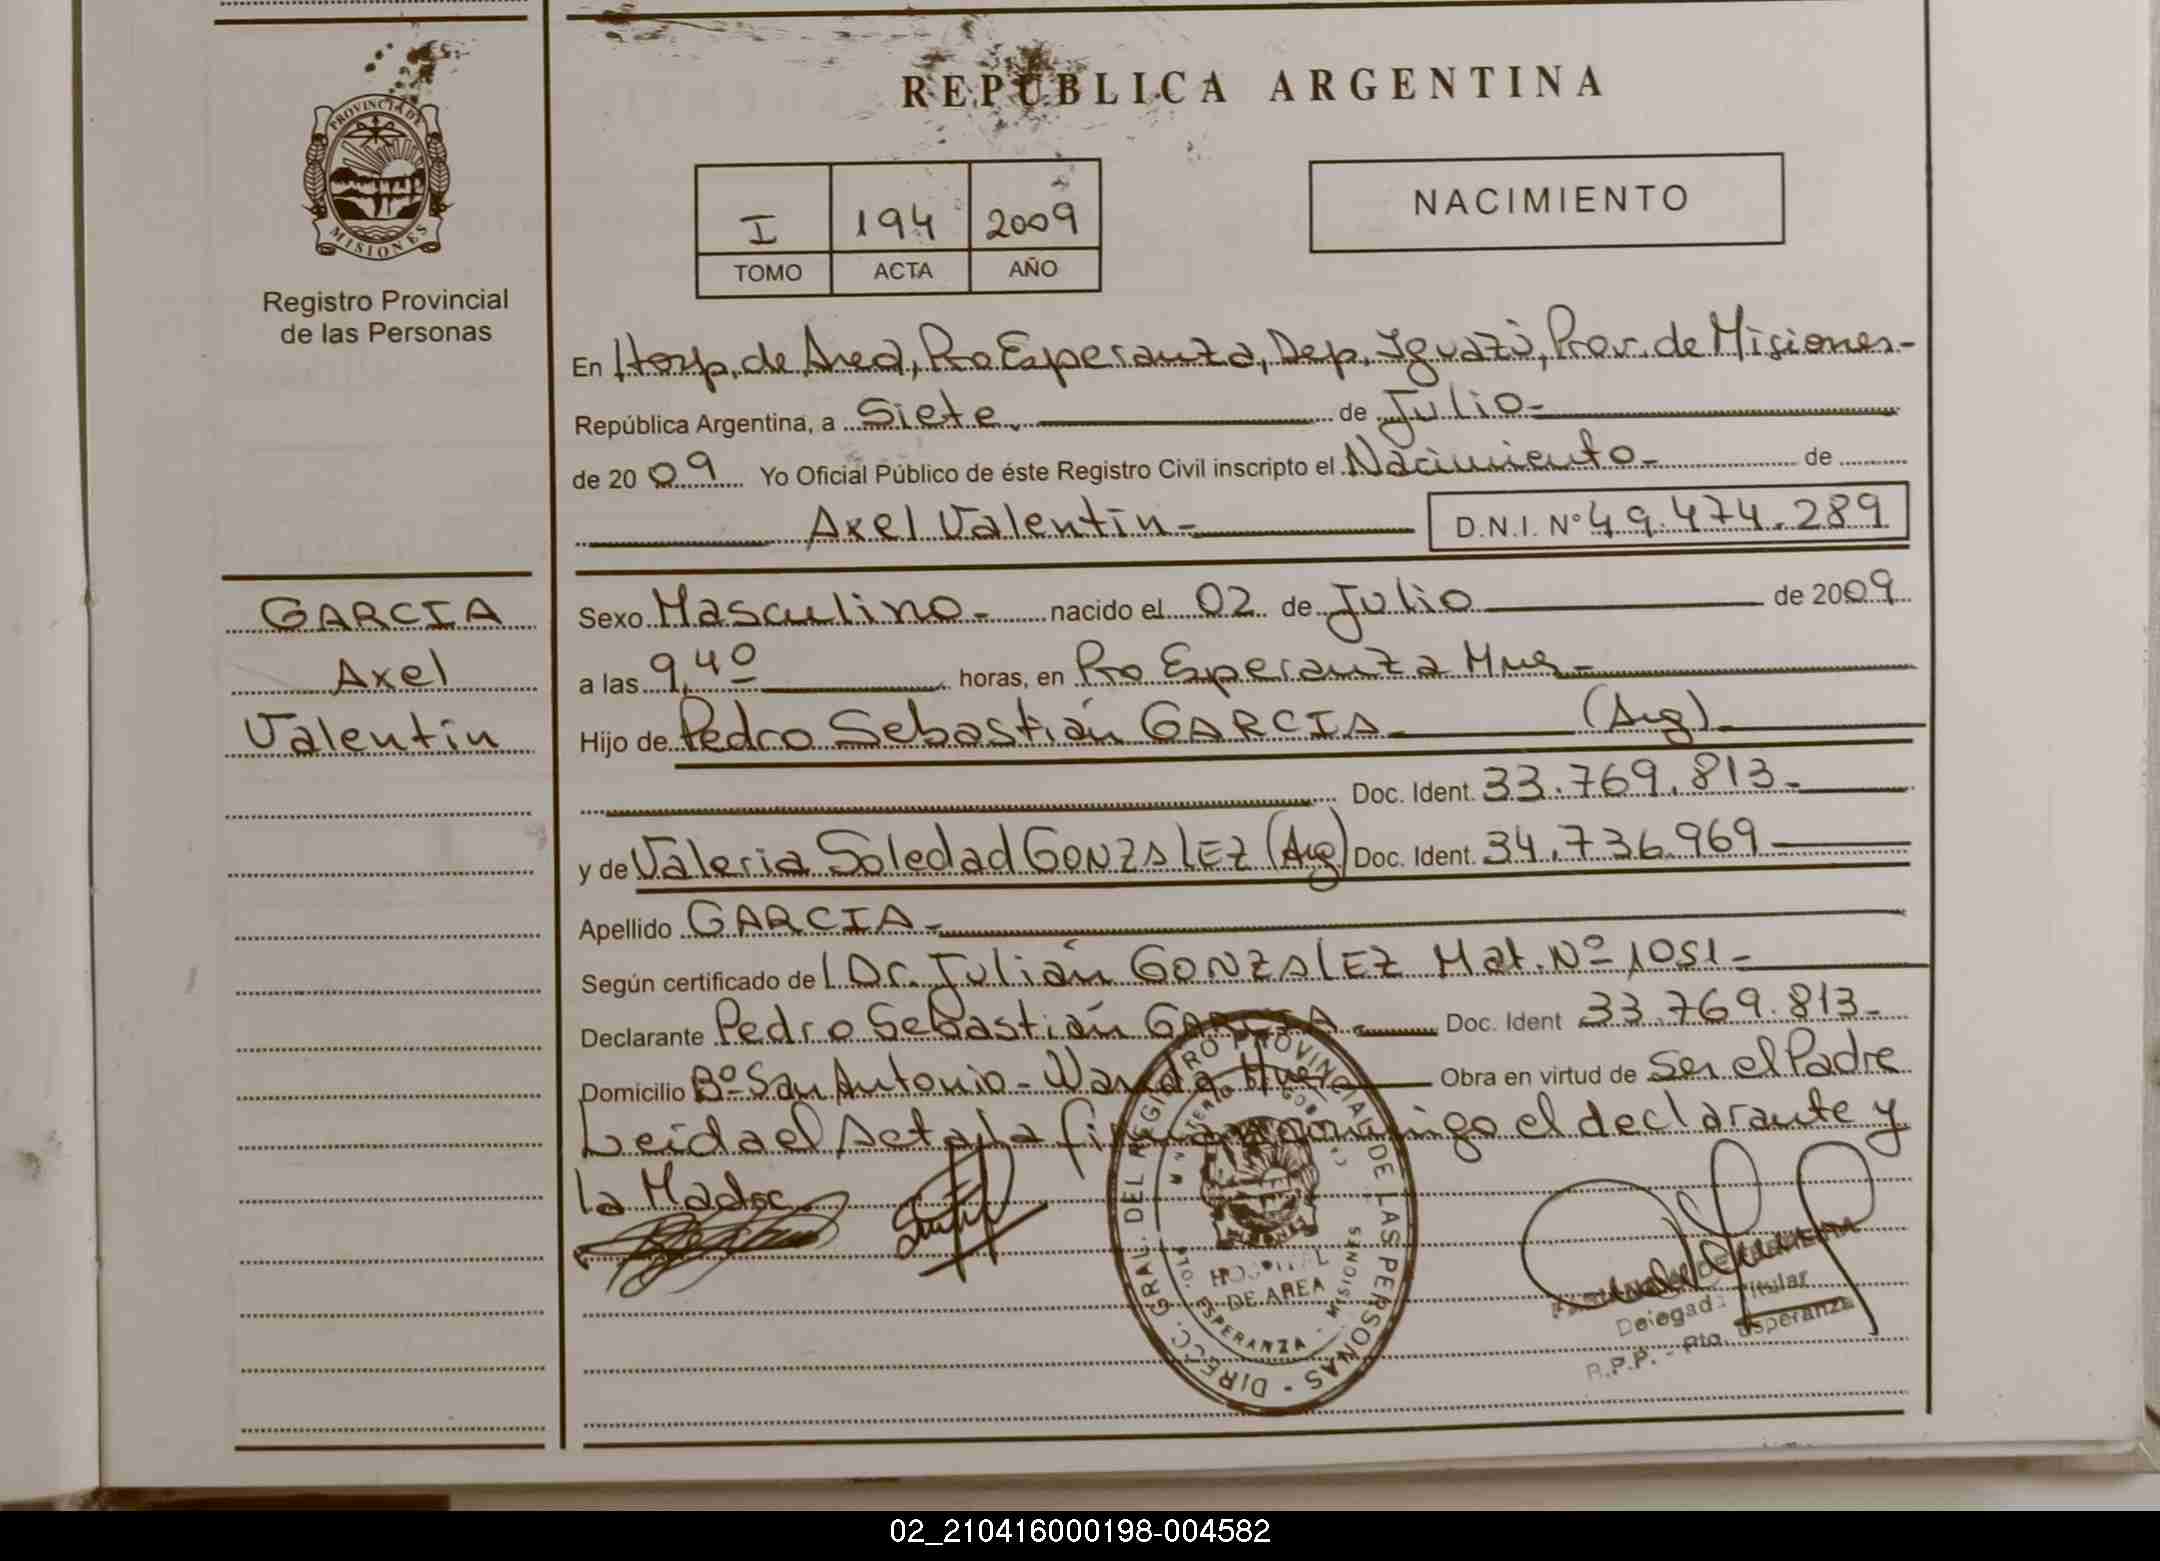 PROVINCIA DE
MISIONES
Registro Provincial
de las Personas
GARCIA
Axel
Valentín
REPUBLICA ARGENTINA
I 194 2009
TOMO ACTA AÑO
NACIMIENTO
En Hosp. de Area, Pto Esperanza, Dep. Iguazú, Prov. de Misiones-
República Argentina, a Siete de Julio-
de 2009 Yo Oficial Público de éste Registro Civil inscripto el Nacimiento- de
Axel Valentín- D.N.I. Nº 49.474.289
Sexo Masculino- nacido el 02 de Julio de 2009
a las 9,40 horas, en Pto Esperanza Mnes-
Hijo de Pedro Sebastián GARCIA (Arg)
Doc. Ident. 33.769.813-
y de Valeria Soledad GONZALEZ (Arg) Doc. Ident. 34.736.969
Apellido GARCIA-
Según certificado de l Dr. Julián GONZALEZ Mat. Nº 1051-
Declarante Pedro Sebastián GARCIA Doc. Ident 33.769.813-
Domicilio Bº San Antonio - Wanda Mnes Obra en virtud de Ser el Padre
Leida el Acta, la firman conmigo el declarante y
la Madre
DIRECC. GRAL. DEL REGISTRO PROVINCIAL DE LAS PERSONAS -
HOSPITAL
DE AREA
ESPERANZA - MISIONES
Delegada Titular
R.P.P. - Pto. Esperanza
02_210416000198-004582